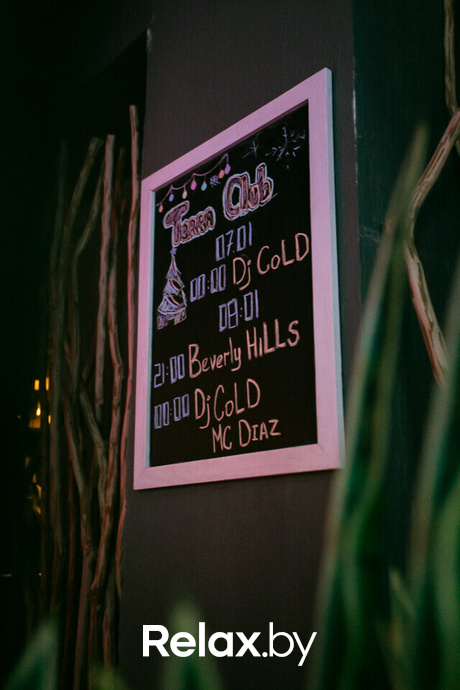 Terra Club
07.01
00:00 Dj COLD
08.01
21:00 Beverly HILLS
00:00 Dj COLD
MC DIAZ
Relax.by